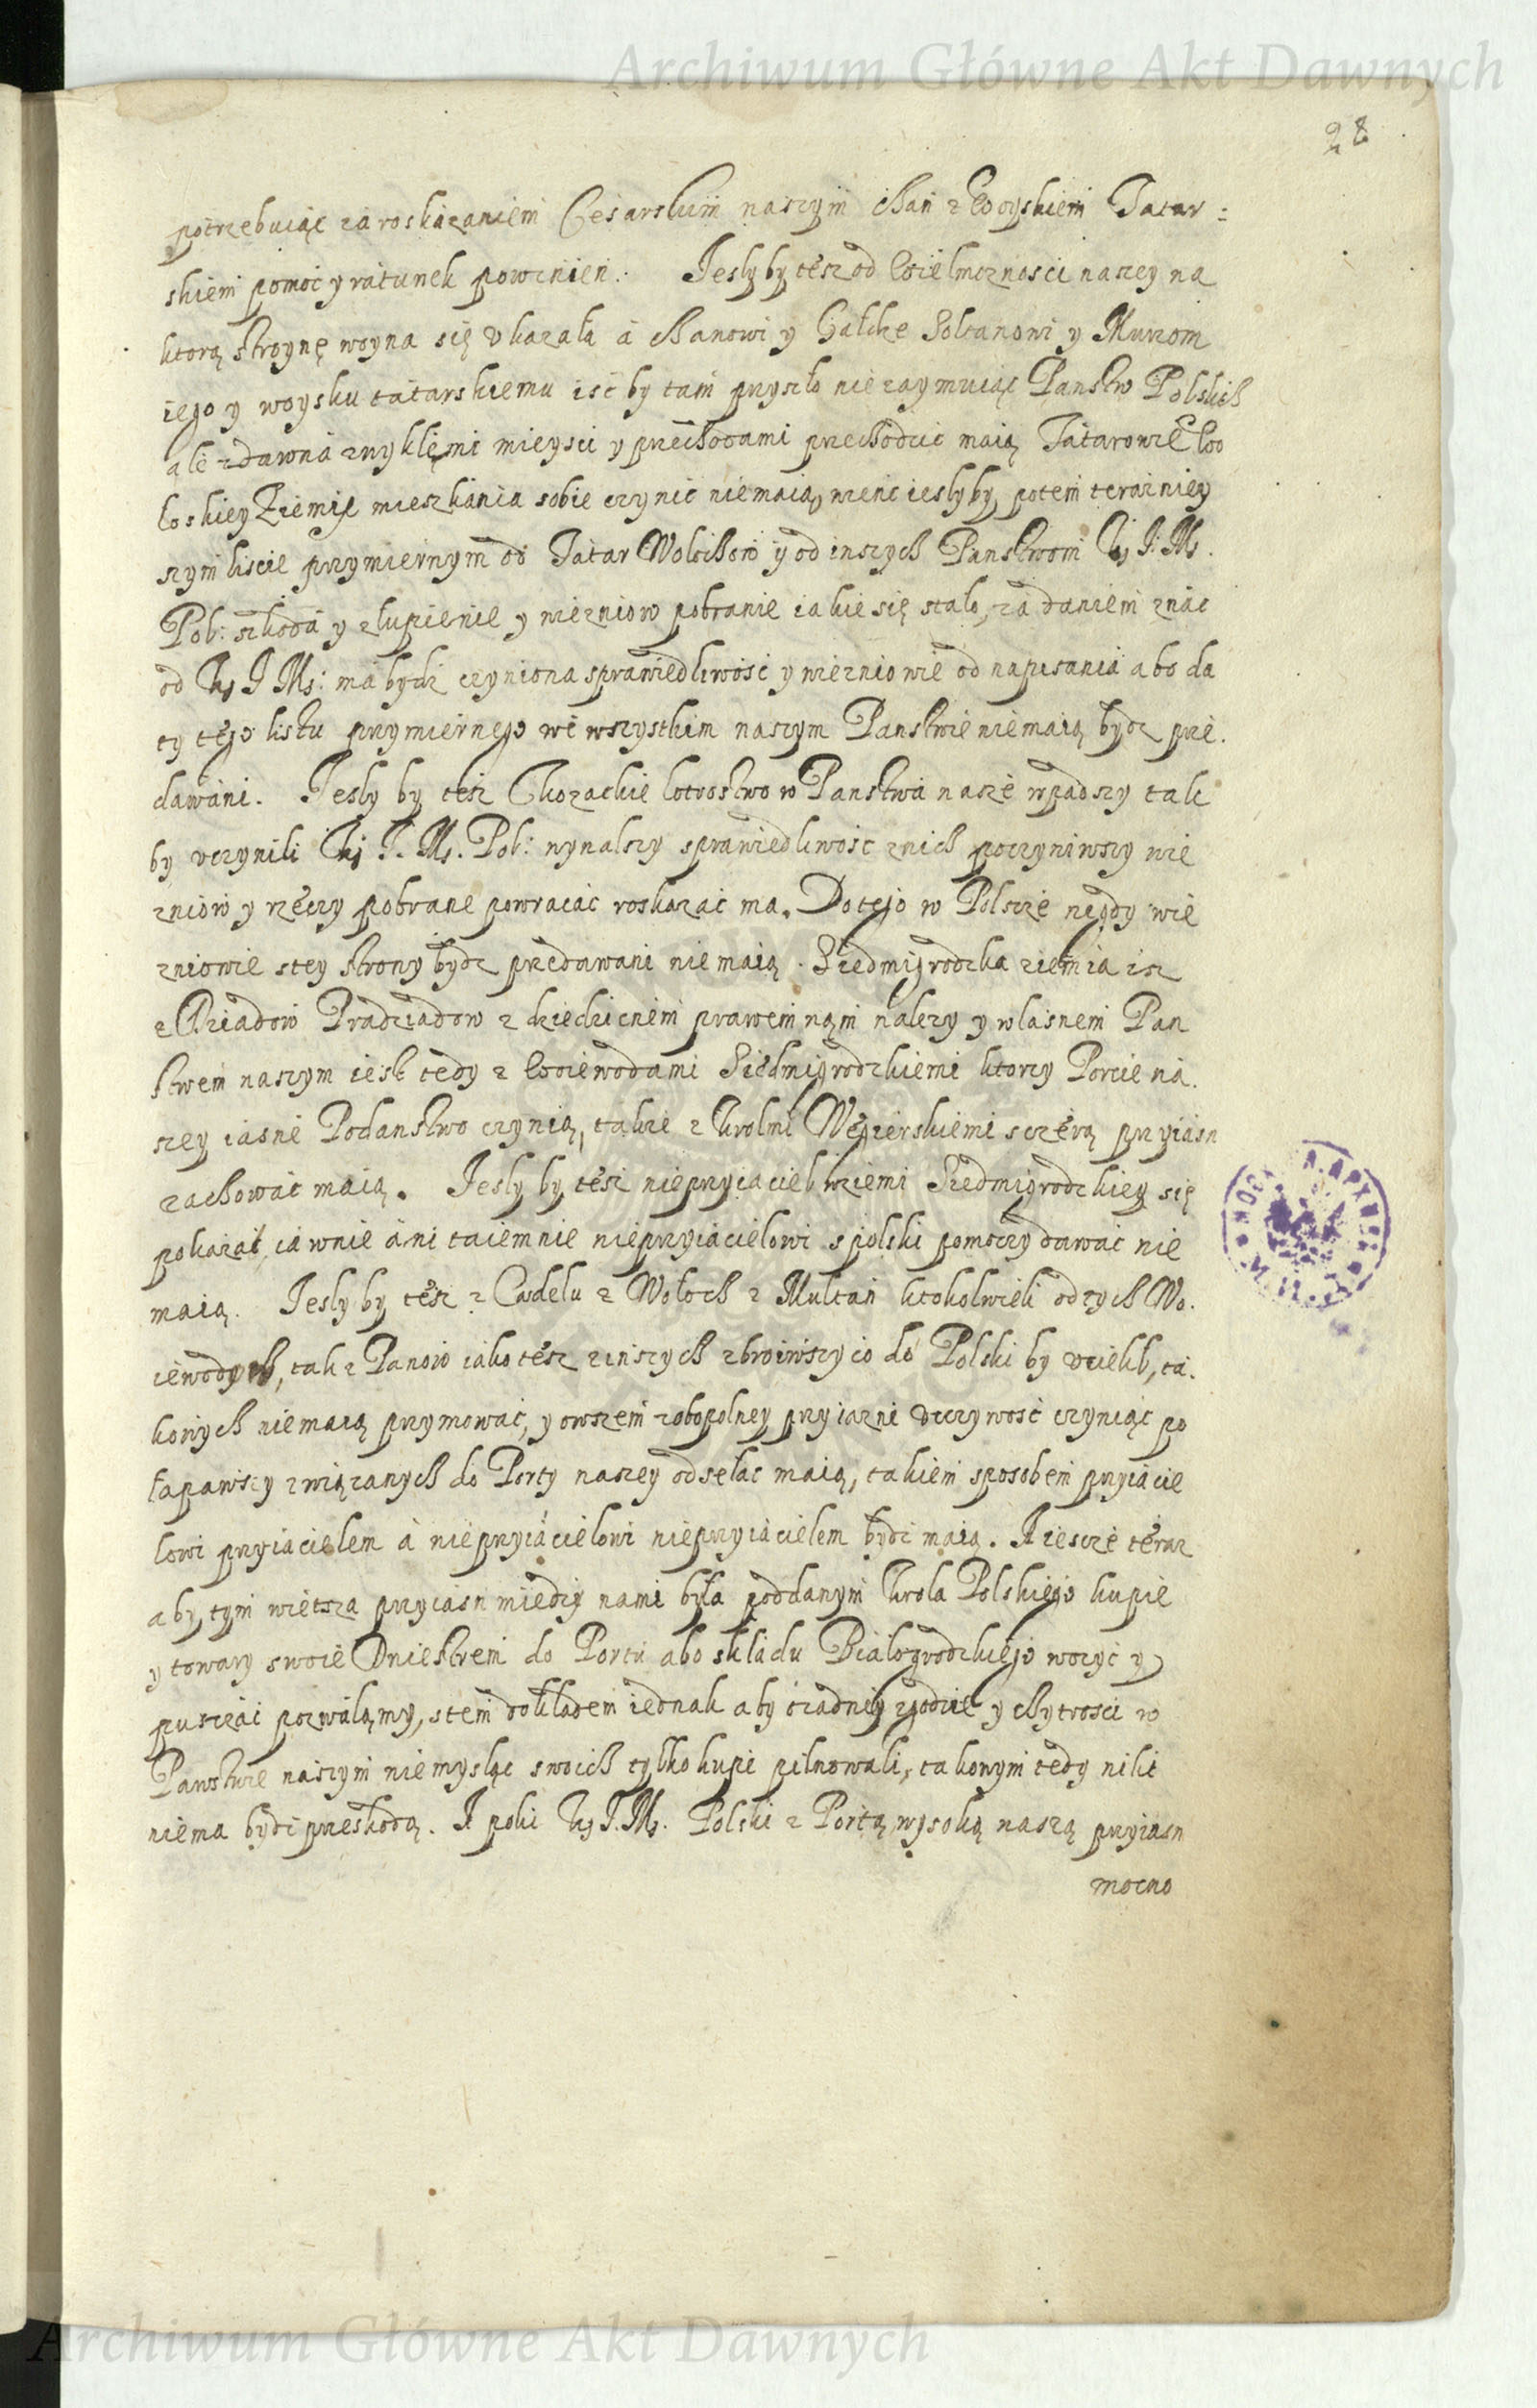 Archiwum Główne Akt Dawnych
28
potrzebuiąc za roskazaniem Cesarskim naszym Chan z Woyskiem Tatar:
skiem pomoc y ratunek powinien. Iesly by tesz od Wielmoznosci naszey na
ktorą stronę woyna się vkazała a Chanowi y Gałdze Soltanowi y Murzom
iego y woysku tatarskiemu isć by tam przyszło nie zaymuiąc Panstw Polskich
ale zdawna zwykłemi mieysci y przechodami przechodzic maią Tatarowie Wo
łoskiey Ziemię mieszkania sobie czynic niemaią, wienc iesly by potem teraznieÿ
szym liscie przymiernym od Tatar Wolochow y od inszych Panstwom K I: M.
Pol: szkoda y złupienie y wiezniow pobranie iakie się stało, za daniem znac
od K I M: ma bydz czyniona sprawiedliwosc y wiezniowie od napisania abo da
ty tego listu przymiernego we wszystkim naszym Panstwie niemaią bydz prze
dawani. Iesly by tesz Kozackie łotrostwo w Panstwa nasze wpadszy tak
by vczynili K I. M. Pol: wynalszy sprawiedliwosc znich poczyniwszy wie
zniow y rzeczy pobrane powracac roskazac ma. Do tego w Polszcze nigdy wie
zniowie stey strony bydz przedawani niemaią. Siedmigrodzka ziemia isz
z Dziadow Pradziadow z dziedzicnem prawem nąm nalezy y własnem Pan
stwem naszym iest tedy z Woiewodami Siedmigrodzkiemi ktorzy Porcie na
szey iasne Podanstwo czynią, takze z Krolmi Węgierskiemi sczerą przyiasn
zachowac maią. Iesly by tesz nieprzyiaciel wziemi Siedmigrodzkiey się
pokazał, iawnie ani taiemnie nieprzyiacielowi s polski pomoczy dawac nie
maią. Iesly by tesz z Wołoch z Multan ktokolwiek od tych Wo.
iewod, tak z Panow iako tesz z inszych zbroiwszy co do Polski by vciekł, ta
kowych niemaią przymowac, y owszem z obopolney przyiazni vczywosc czyniąc po
łapawszy związanych do Porty naszey odsełac maią, takiem sposobem przyiacie
lowi przyiacielem a nieprzyiacielowi nieprzyiacielem bydz maią. I iescze teraz
aby tym wietsza przyiasn miedzy nami była poddanym Krola Polskiego kupie
y towary swoie Dniestrem do Portu abo składu Białogrodzkiego wozyc y
puszczac pozwaląmy, stem dokładem iednak aby o zadney zdradzie y chytrosci w
Panstwie naszym niemysląc swoich tylko kupi pilnowali, takowym tedy nikt
niema bydz przeskodą. I poki K I. M. Polski z Portą wysoką naszą przyiasn
mocno
Archiwum Główne Akt Dawnych